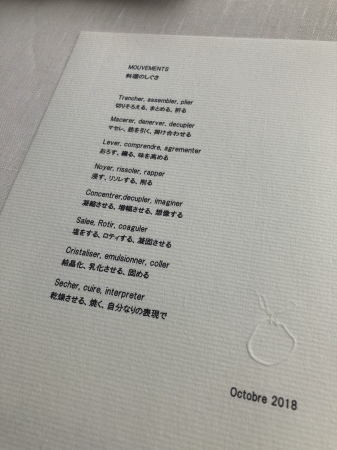 MOUVEMENTS
料理のしぐさ
Trencher, assembler, plier
切りそろえる、まとめる、折る
Macerer, denerver, decupler
マセレ、筋を引く、掛け合わせる
Lever, comprendre, agrementer
おろす、綴る、味を高める
Noyer, rissoler, rapper
浸す、リソレする、削る
Concentrer,decupler, imaginer
凝縮させる、増幅させる、想像する
Salee, Rotir, coaguler
塩をする、ロティする、凝固させる
Cristaliser, emulsionner, coller
結晶化、乳化させる、固める
Secher, cuire, interpreter
乾燥させる、焼く、自分なりの表現で
Octobre 2018